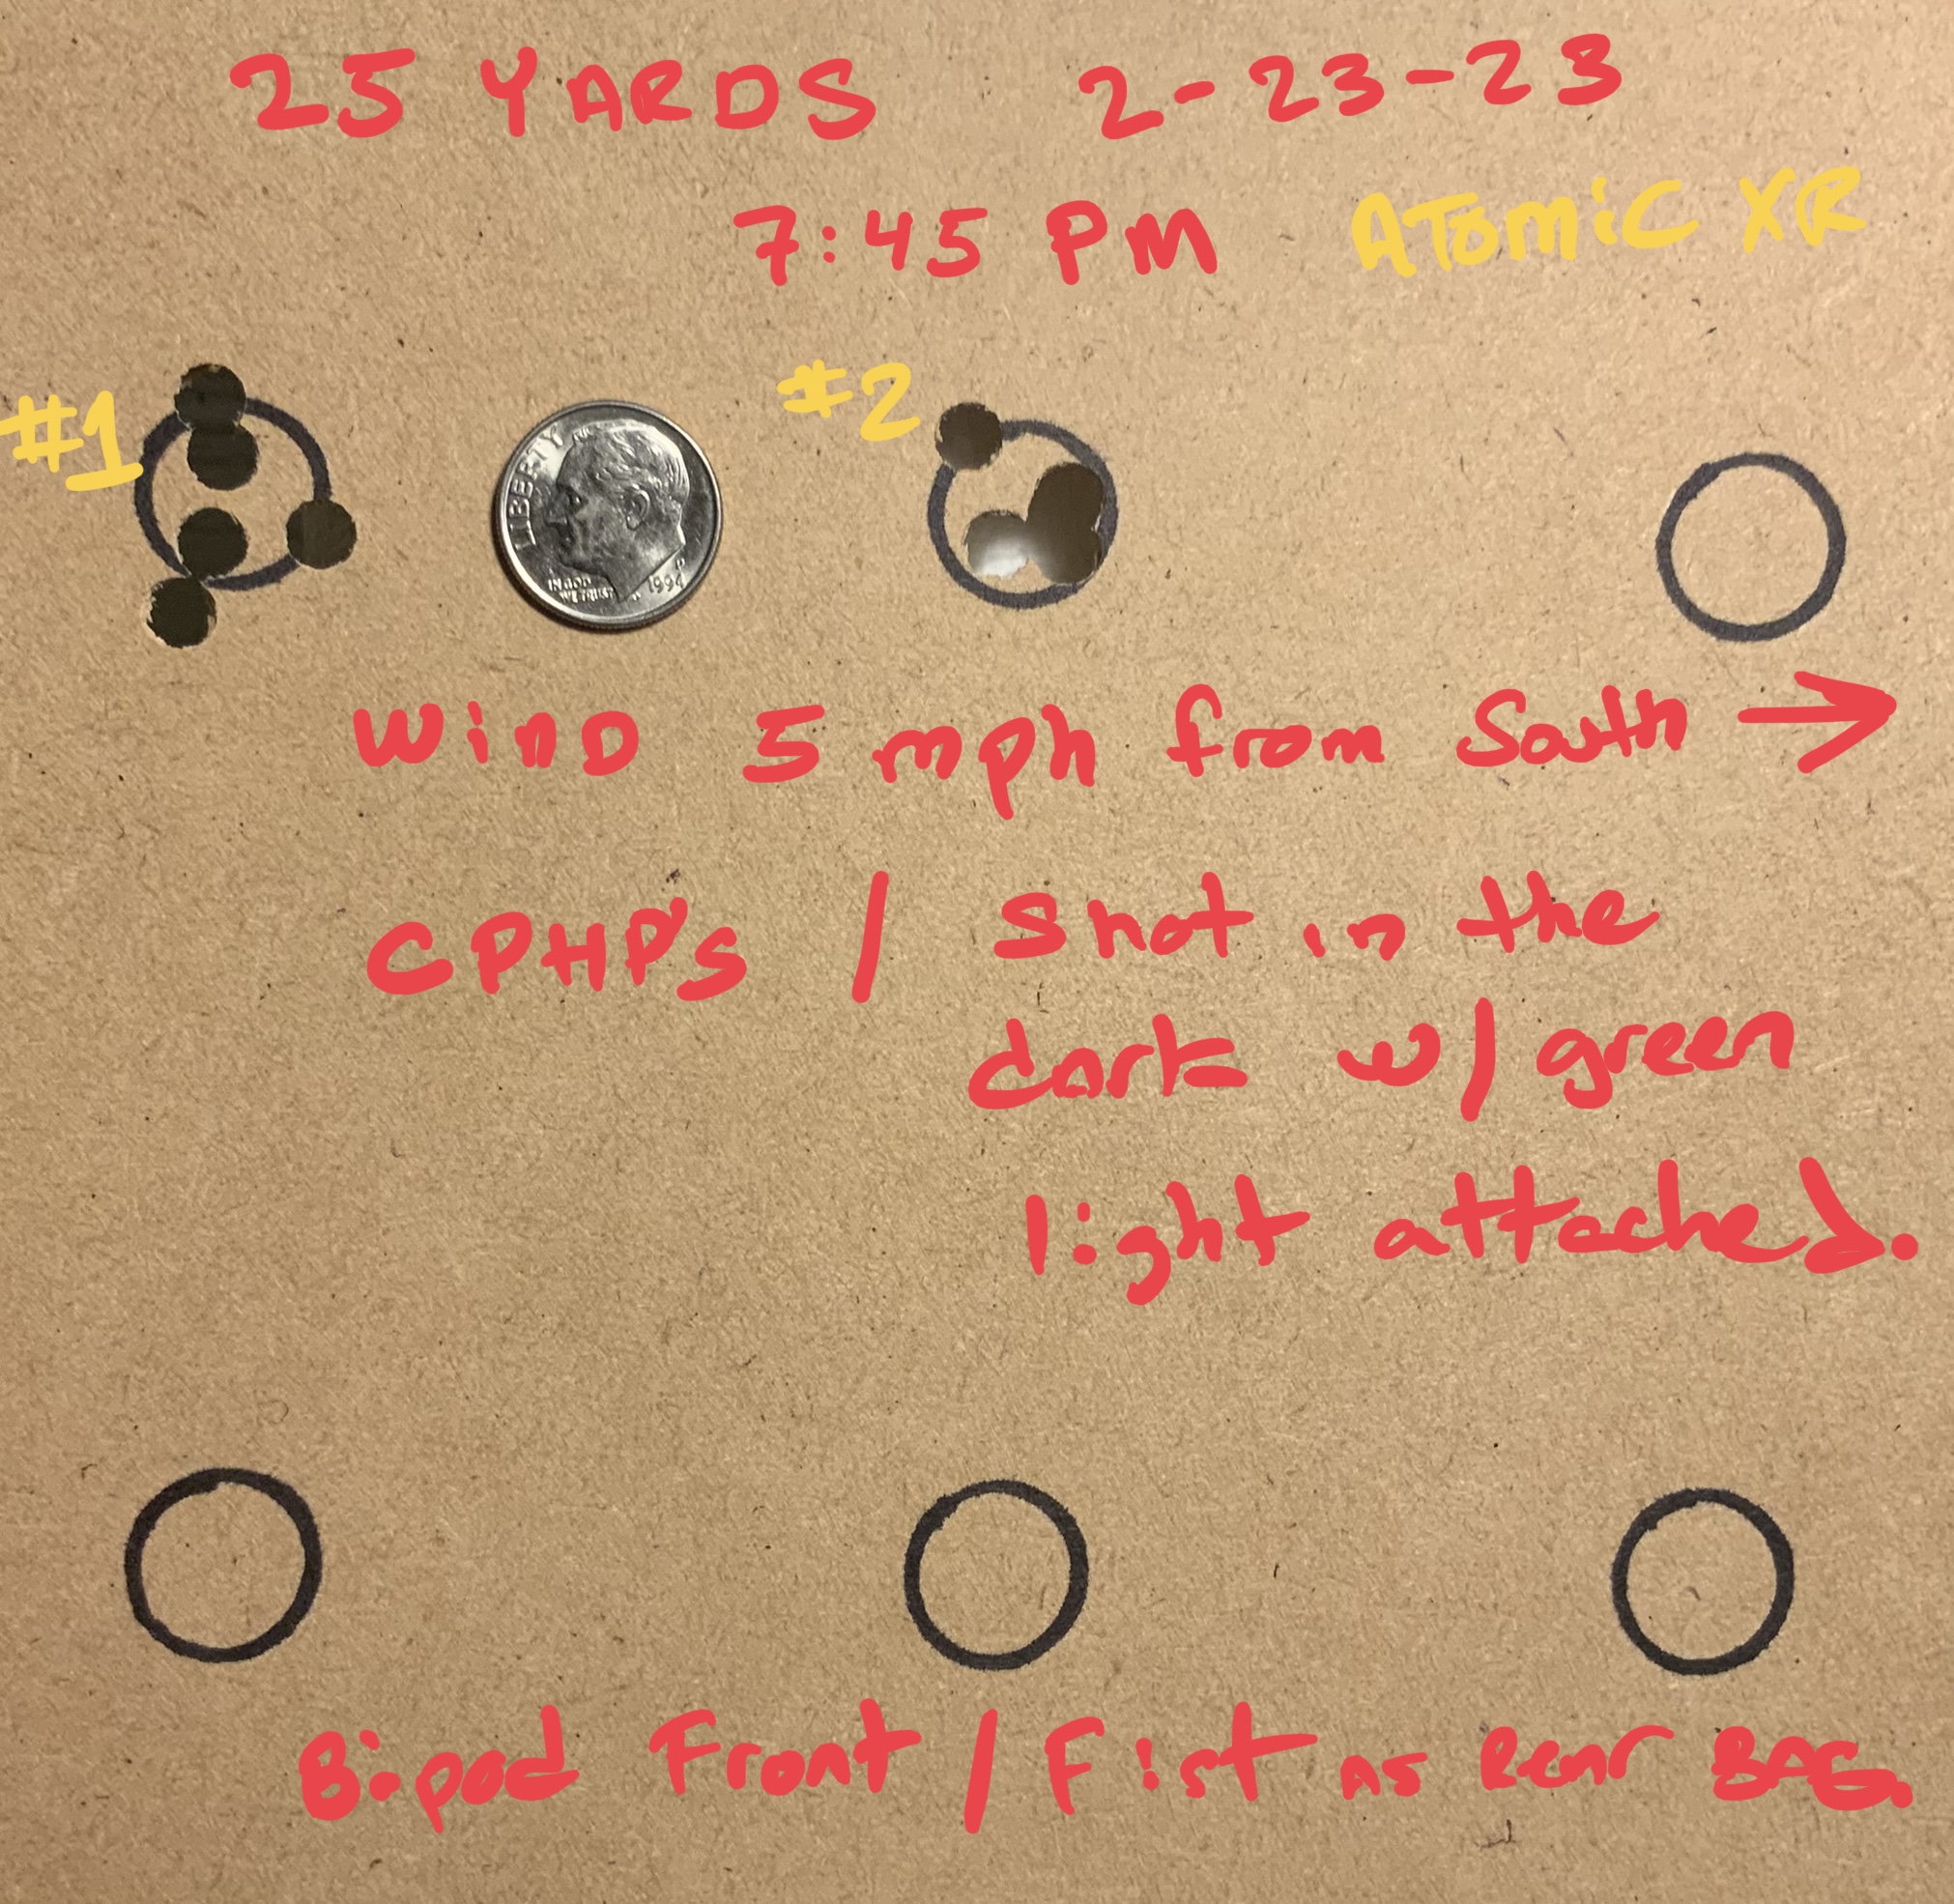 25 YARDS 2-23-23
7:45 PM ATOMiC XR
#1
#2
LIBERTY
IN GOD
WE TRUST
P
1994
WinD 5 mph from South →
CPHP's / Shot in the
dark w/ green
light attached.
Bipod Front / Fist AS Rear BAG.